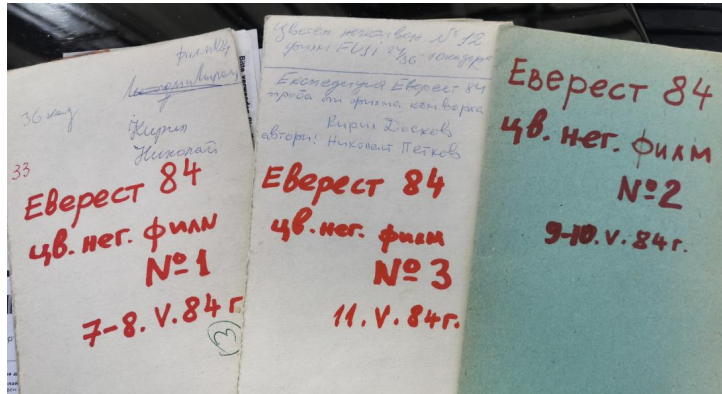 филм №4
36 кад
Кирил
Николай
33
Еверест 84
цв. нег. филм
№ 1
7-8. V. 84 г.
3
Цветен негативен № 12
филм FUJI
Експедиция Еверест 84
проба от филма
Кирил Досков
автори: Николай Петков
Еверест 84
цв. нег. филм
№ 3
11. V. 84г.
Еверест 84
цв. нег. филм
№ 2
9-10. V. 84 г.